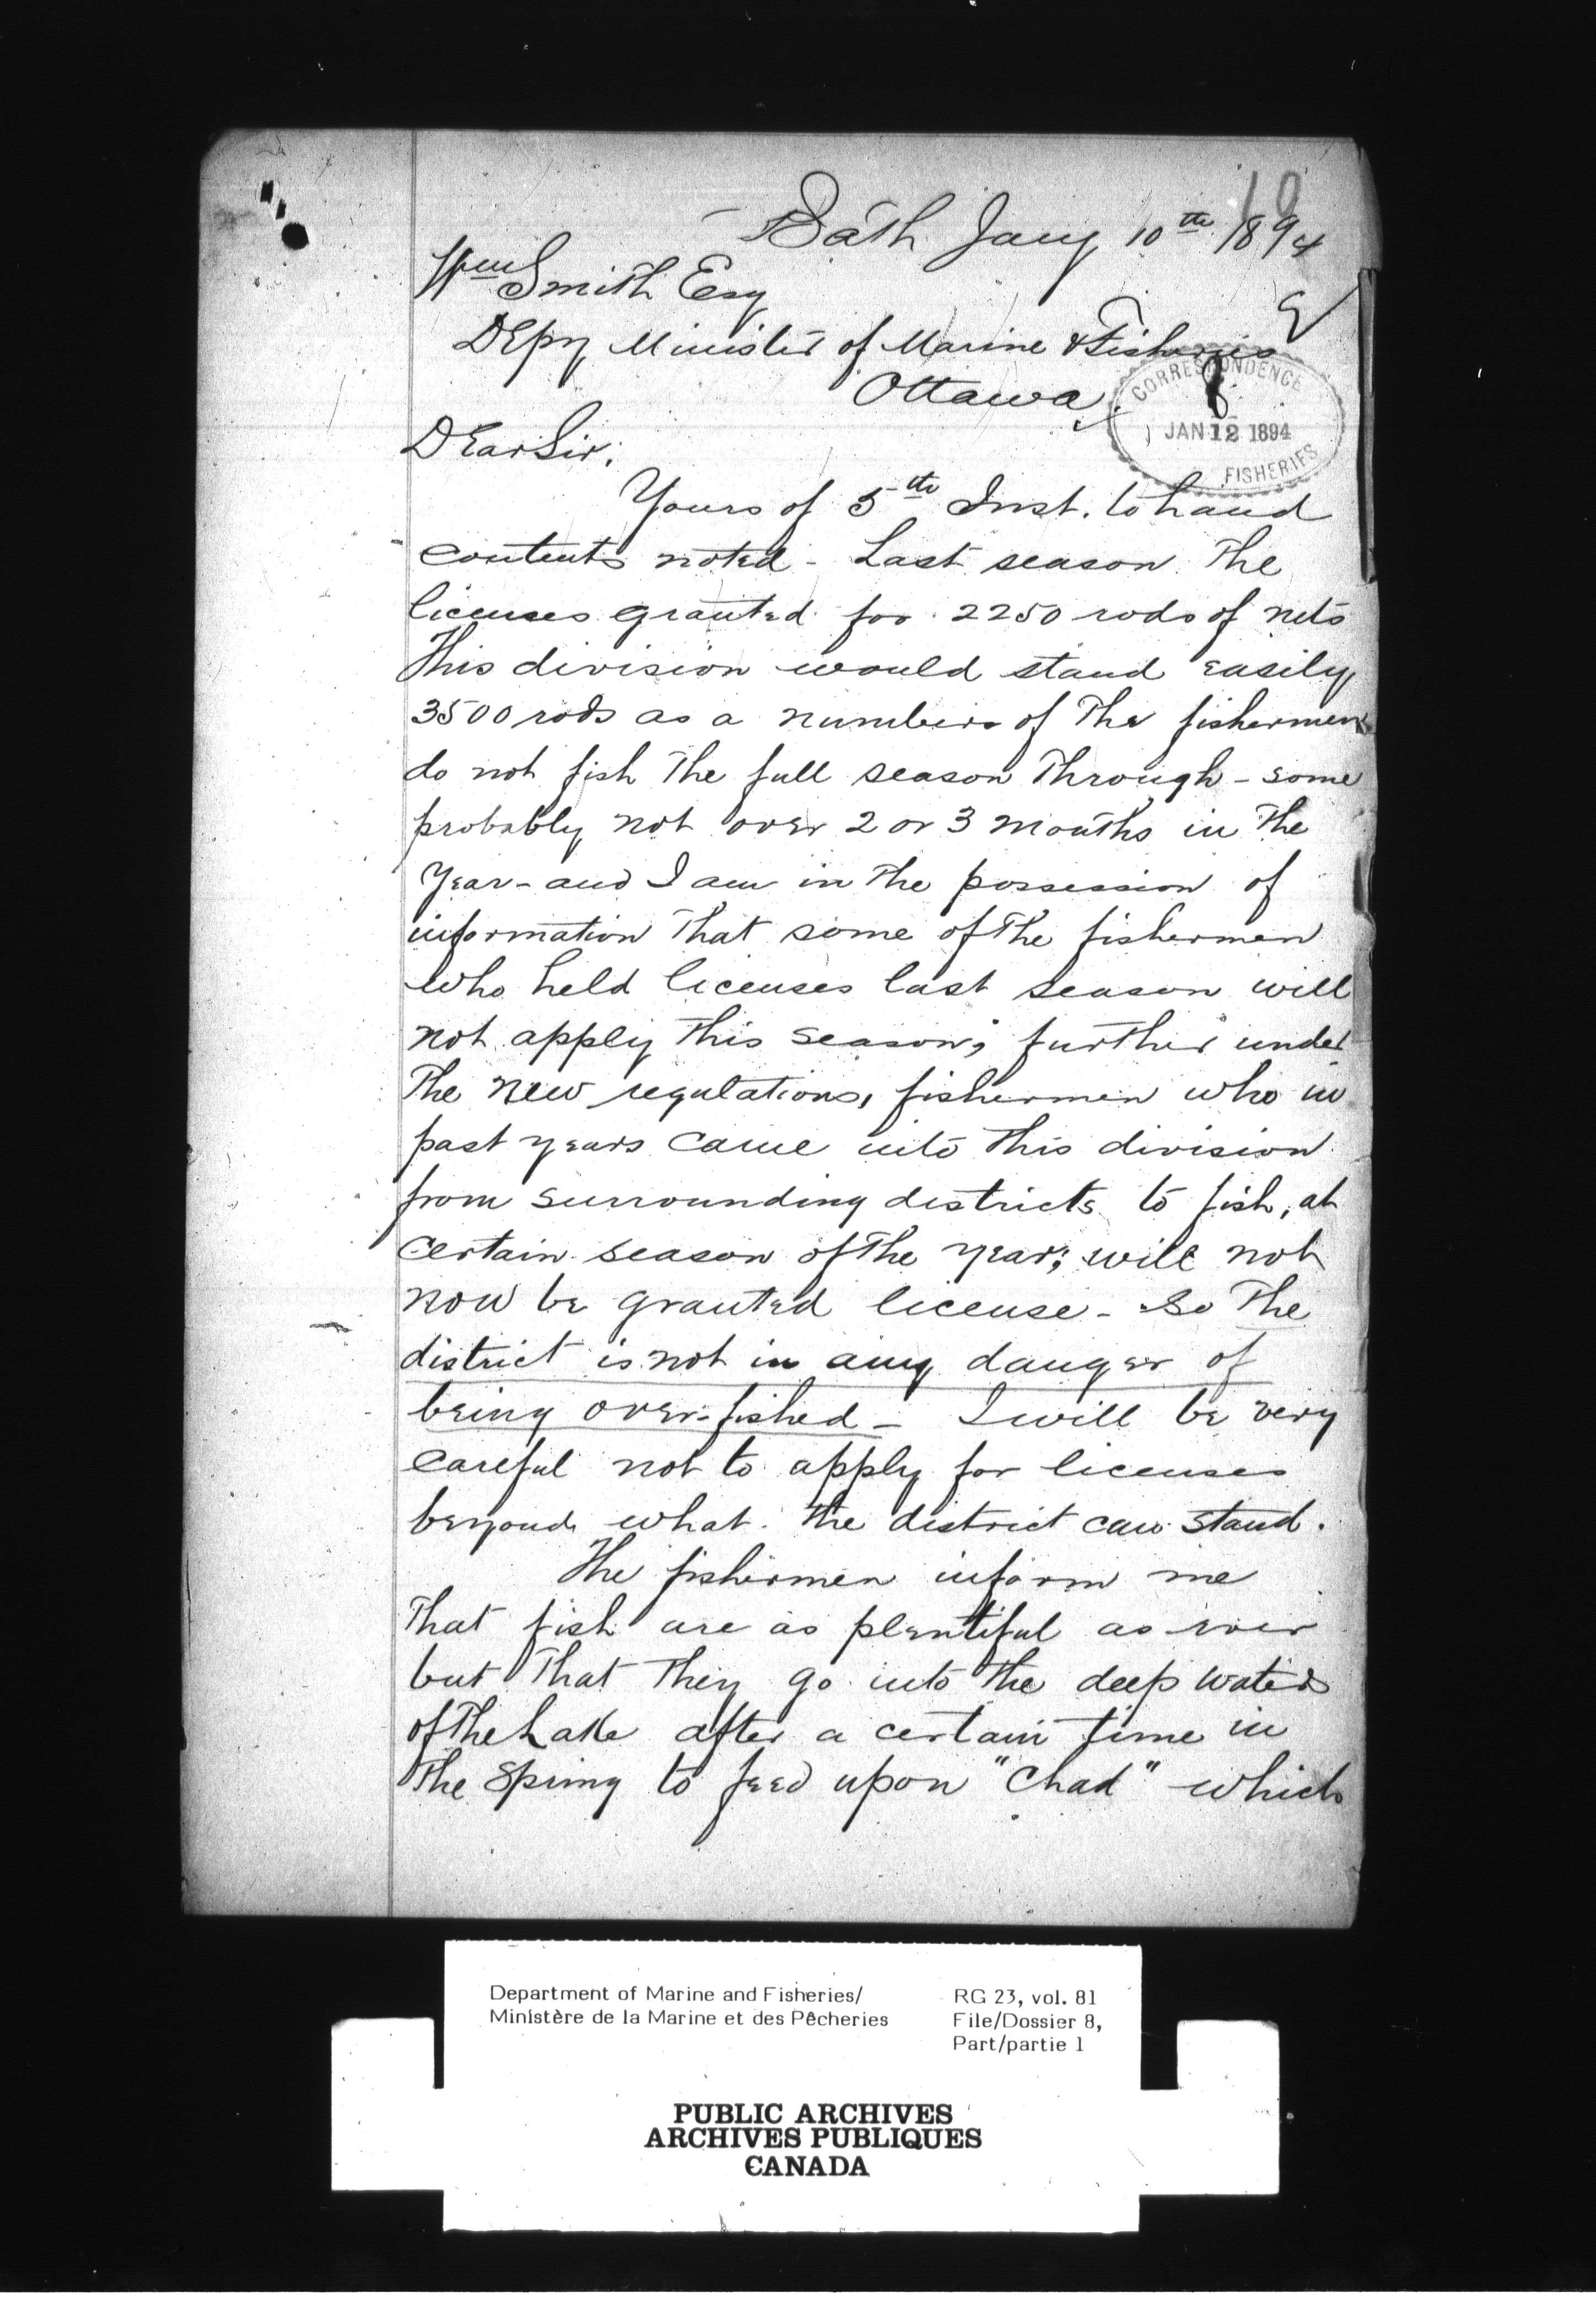 10
Bath Jany 10th 1894
Wm Smith Esq
Depy Minister of Marine & Fisheries
Ottawa.
CORRESPONDENCE
JAN 12 1894
FISHERIES
Dear Sir.
Yours of 5th Inst. to hand
contents noted - Last season The
licenses granted for 2250 rods of nets
This division would stand easily
3500 rods as a numbers of The fishermen
do not fish The full season Through - some
probably not over 2 or 3 months in The
Year - and I am in The possession of
information That some of The fishermen
who held licenses last season will
not apply This season; further under
The new regulations, fishermen who in
past years came into This division
from surrounding districts to fish, at
certain season of The year; will not
now be granted license - So The
district is not in any danger of
being over-fished - I will be very
careful not to apply for licenses
beyond what the district can stand.
The fishermen inform me
That fish are as plentiful as ever
but That They go into The deep waters
of The Lake after a certain time in
The Spring to feed upon "Chad" which
Department of Marine and Fisheries/
Ministère de la Marine et des Pêcheries
RG 23, vol. 81
File/Dossier 8,
Part/partie 1
PUBLIC ARCHIVES
ARCHIVES PUBLIQUES
CANADA